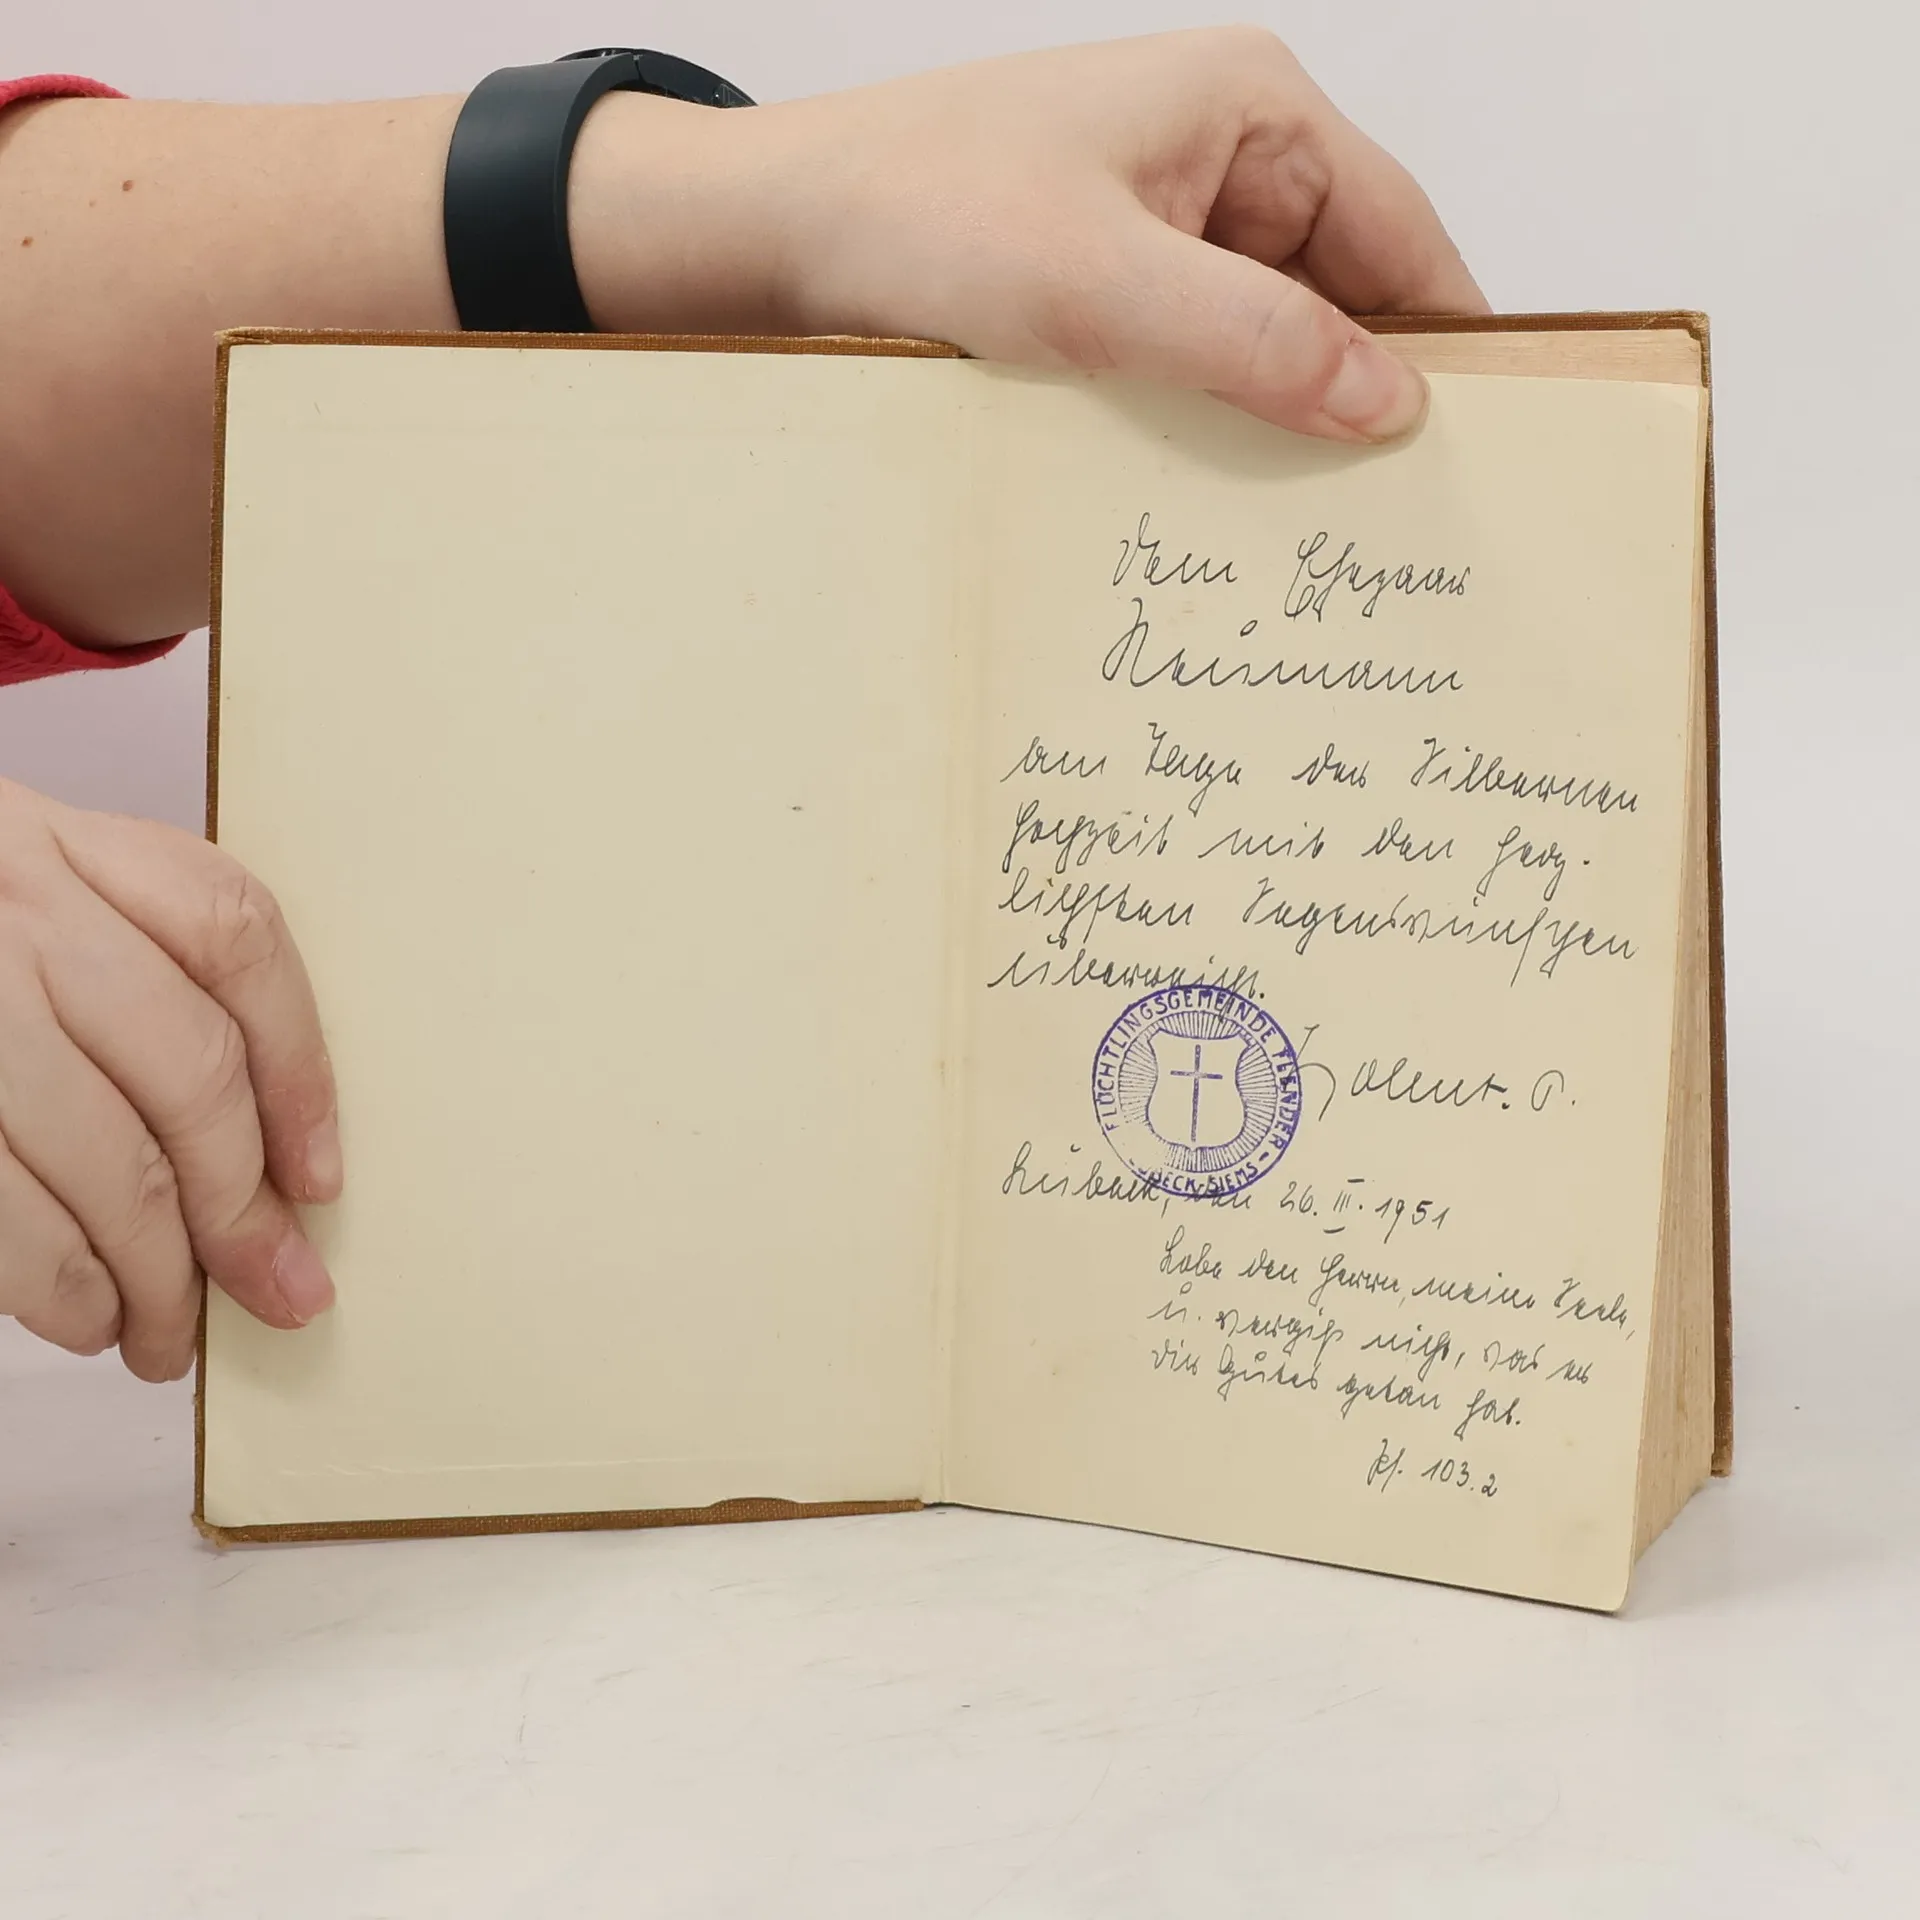 Dem Ehepaar
Neumann
am Tage der Silbernen
Hochzeit mit den herz-
lichsten Segenswünschen
überreicht.
FLÜCHTLINGSGEMEINDE FLENDER
- LÜBECK-SIEMS -
P.
Lübeck, den 26. III. 1951
Lobe den Herrn, meine Seele,
u. vergiß nicht, was er
dir Gutes getan hat.
Ps. 103.2